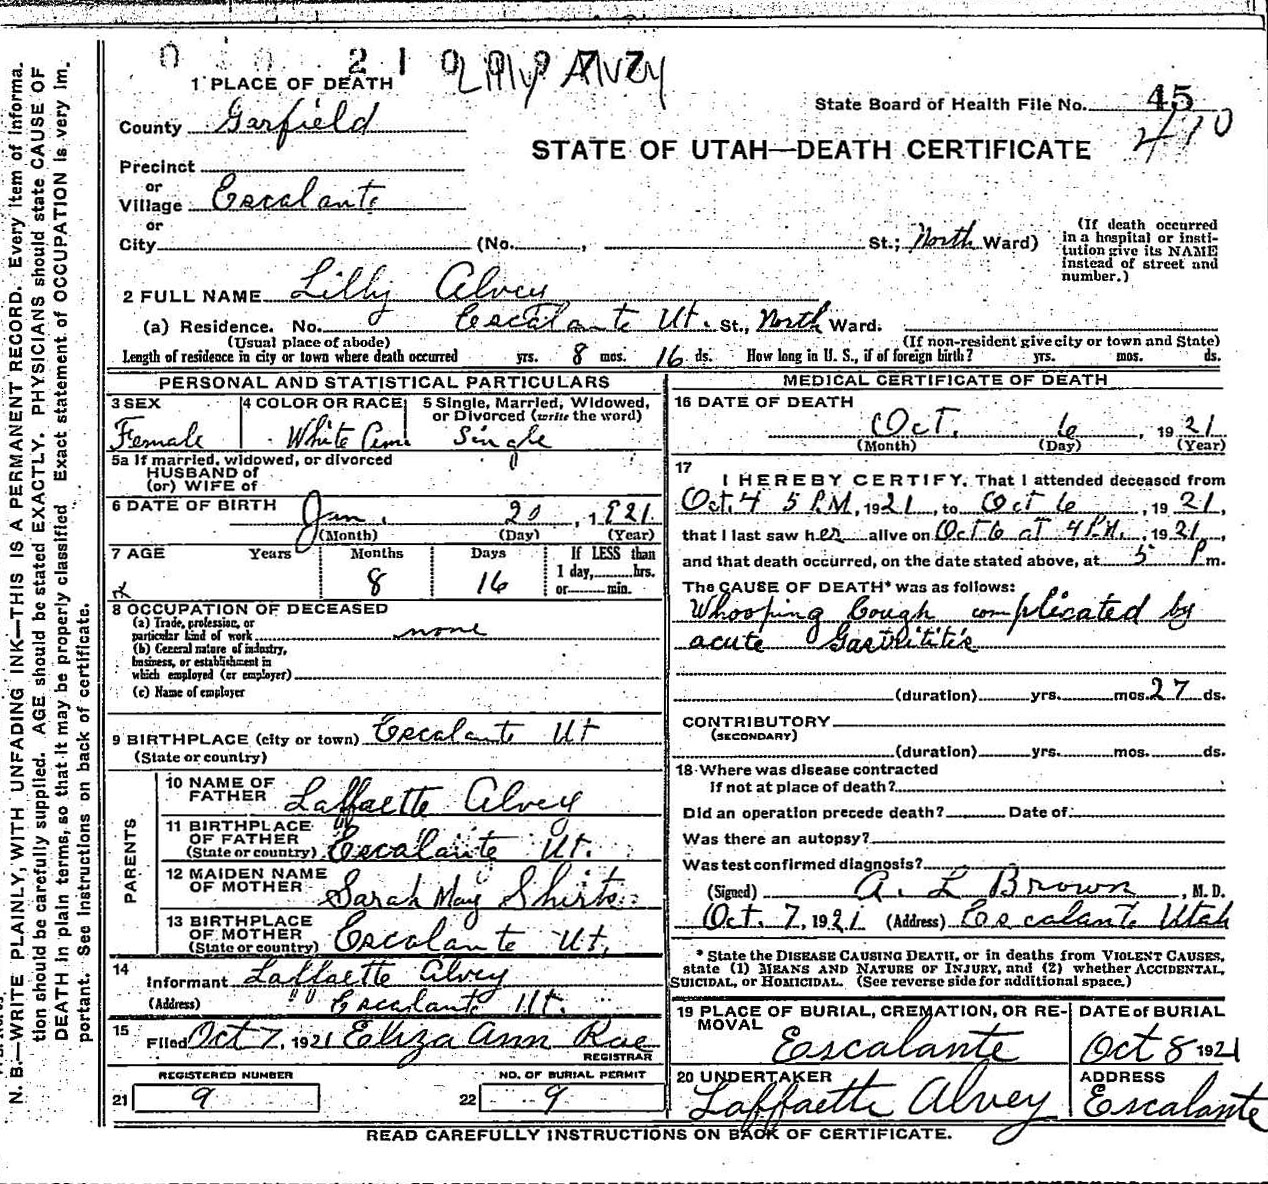 2 1 0 0 7 7
Lilly Alvey
1 PLACE OF DEATH
State Board of Health File No. 45
410
County Garfield
STATE OF UTAH—DEATH CERTIFICATE
Precinct
or
Village Escalante
or
City (No. , St.; North Ward)
(If death occurred
in a hospital or insti-
tution give its NAME
instead of street and
number.)
2 FULL NAME Lilly Alvey
(a) Residence. No. Escalante Ut. St., North Ward.
(Usual place of abode) (If non-resident give city or town and State)
Length of residence in city or town where death occurred yrs. 8 mos. 16 ds. How long in U. S., if of foreign birth? yrs. mos. ds.
PERSONAL AND STATISTICAL PARTICULARS
3 SEX 4 COLOR OR RACE 5 Single, Married, Widowed,
or Divorced (write the word)
Female White Single
5a If married, widowed, or divorced
HUSBAND of
(or) WIFE of
6 DATE OF BIRTH Jan. 20, 1921
(Month) (Day) (Year)
7 AGE Years Months Days If LESS than
1 day, hrs.
or min.
8 16
8 OCCUPATION OF DECEASED
(a) Trade, profession, or
particular kind of work none
(b) General nature of industry,
business, or establishment in
which employed (or employer)
(c) Name of employer
9 BIRTHPLACE (city or town) Escalante Ut
(State or country)
PARENTS
10 NAME OF
FATHER Laffaette Alvey
11 BIRTHPLACE
OF FATHER
(State or country) Escalante Ut.
12 MAIDEN NAME
OF MOTHER Sarah May Shirts
13 BIRTHPLACE
OF MOTHER
(State or country) Escalante Ut.
14
Informant Laffaette Alvey
(Address) " " Escalante Ut.
15 Filed Oct 7, 1921 Eliza Ann Rae
REGISTRAR
REGISTERED NUMBER NO. OF BURIAL PERMIT
21 9 22 9
MEDICAL CERTIFICATE OF DEATH
16 DATE OF DEATH
Oct. 6, 1921
(Month) (Day) (Year)
17
I HEREBY CERTIFY, That I attended deceased from
Oct. 4 5 P.M., 1921, to Oct 6, 1921,
that I last saw her alive on Oct 6 at 4 P.M., 1921,
and that death occurred, on the date stated above, at 5 P m.
The CAUSE OF DEATH* was as follows:
Whooping Cough complicated by
acute Gastritis
(duration) yrs. mos. 27 ds.
CONTRIBUTORY
(SECONDARY)
(duration) yrs. mos. ds.
18 Where was disease contracted
If not at place of death?
Did an operation precede death? Date of
Was there an autopsy?
Was test confirmed diagnosis?
(Signed) A. L Brown, M. D.
Oct. 7, 1921 (Address) Escalante Utah
* State the DISEASE CAUSING DEATH, or in deaths from VIOLENT CAUSES,
state (1) MEANS AND NATURE OF INJURY, and (2) whether ACCIDENTAL,
SUICIDAL, or HOMICIDAL. (See reverse side for additional space.)
19 PLACE OF BURIAL, CREMATION, OR RE-
MOVAL
Escalante
DATE of BURIAL
Oct 8 1921
20 UNDERTAKER
Laffaette Alvey
ADDRESS
Escalante
READ CAREFULLY INSTRUCTIONS ON BACK OF CERTIFICATE.
N. B.—WRITE PLAINLY, WITH UNFADING INK—THIS IS A PERMANENT RECORD. Every item of informa-
tion should be carefully supplied. AGE should be stated EXACTLY. PHYSICIANS should state CAUSE OF
DEATH in plain terms, so that it may be properly classified. Exact statement of OCCUPATION is very im-
portant. See instructions on back of certificate.